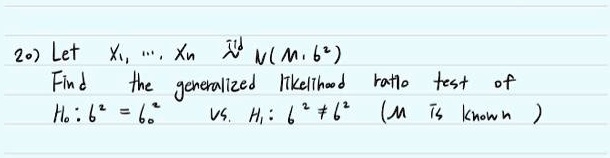 20) Let X₁, ..., Xn iid N(μ, σ²)
Find the generalized likelihood ratio test of
H₀: σ² = σ₀² vs. H₁: σ² ≠ σ² (μ is known)